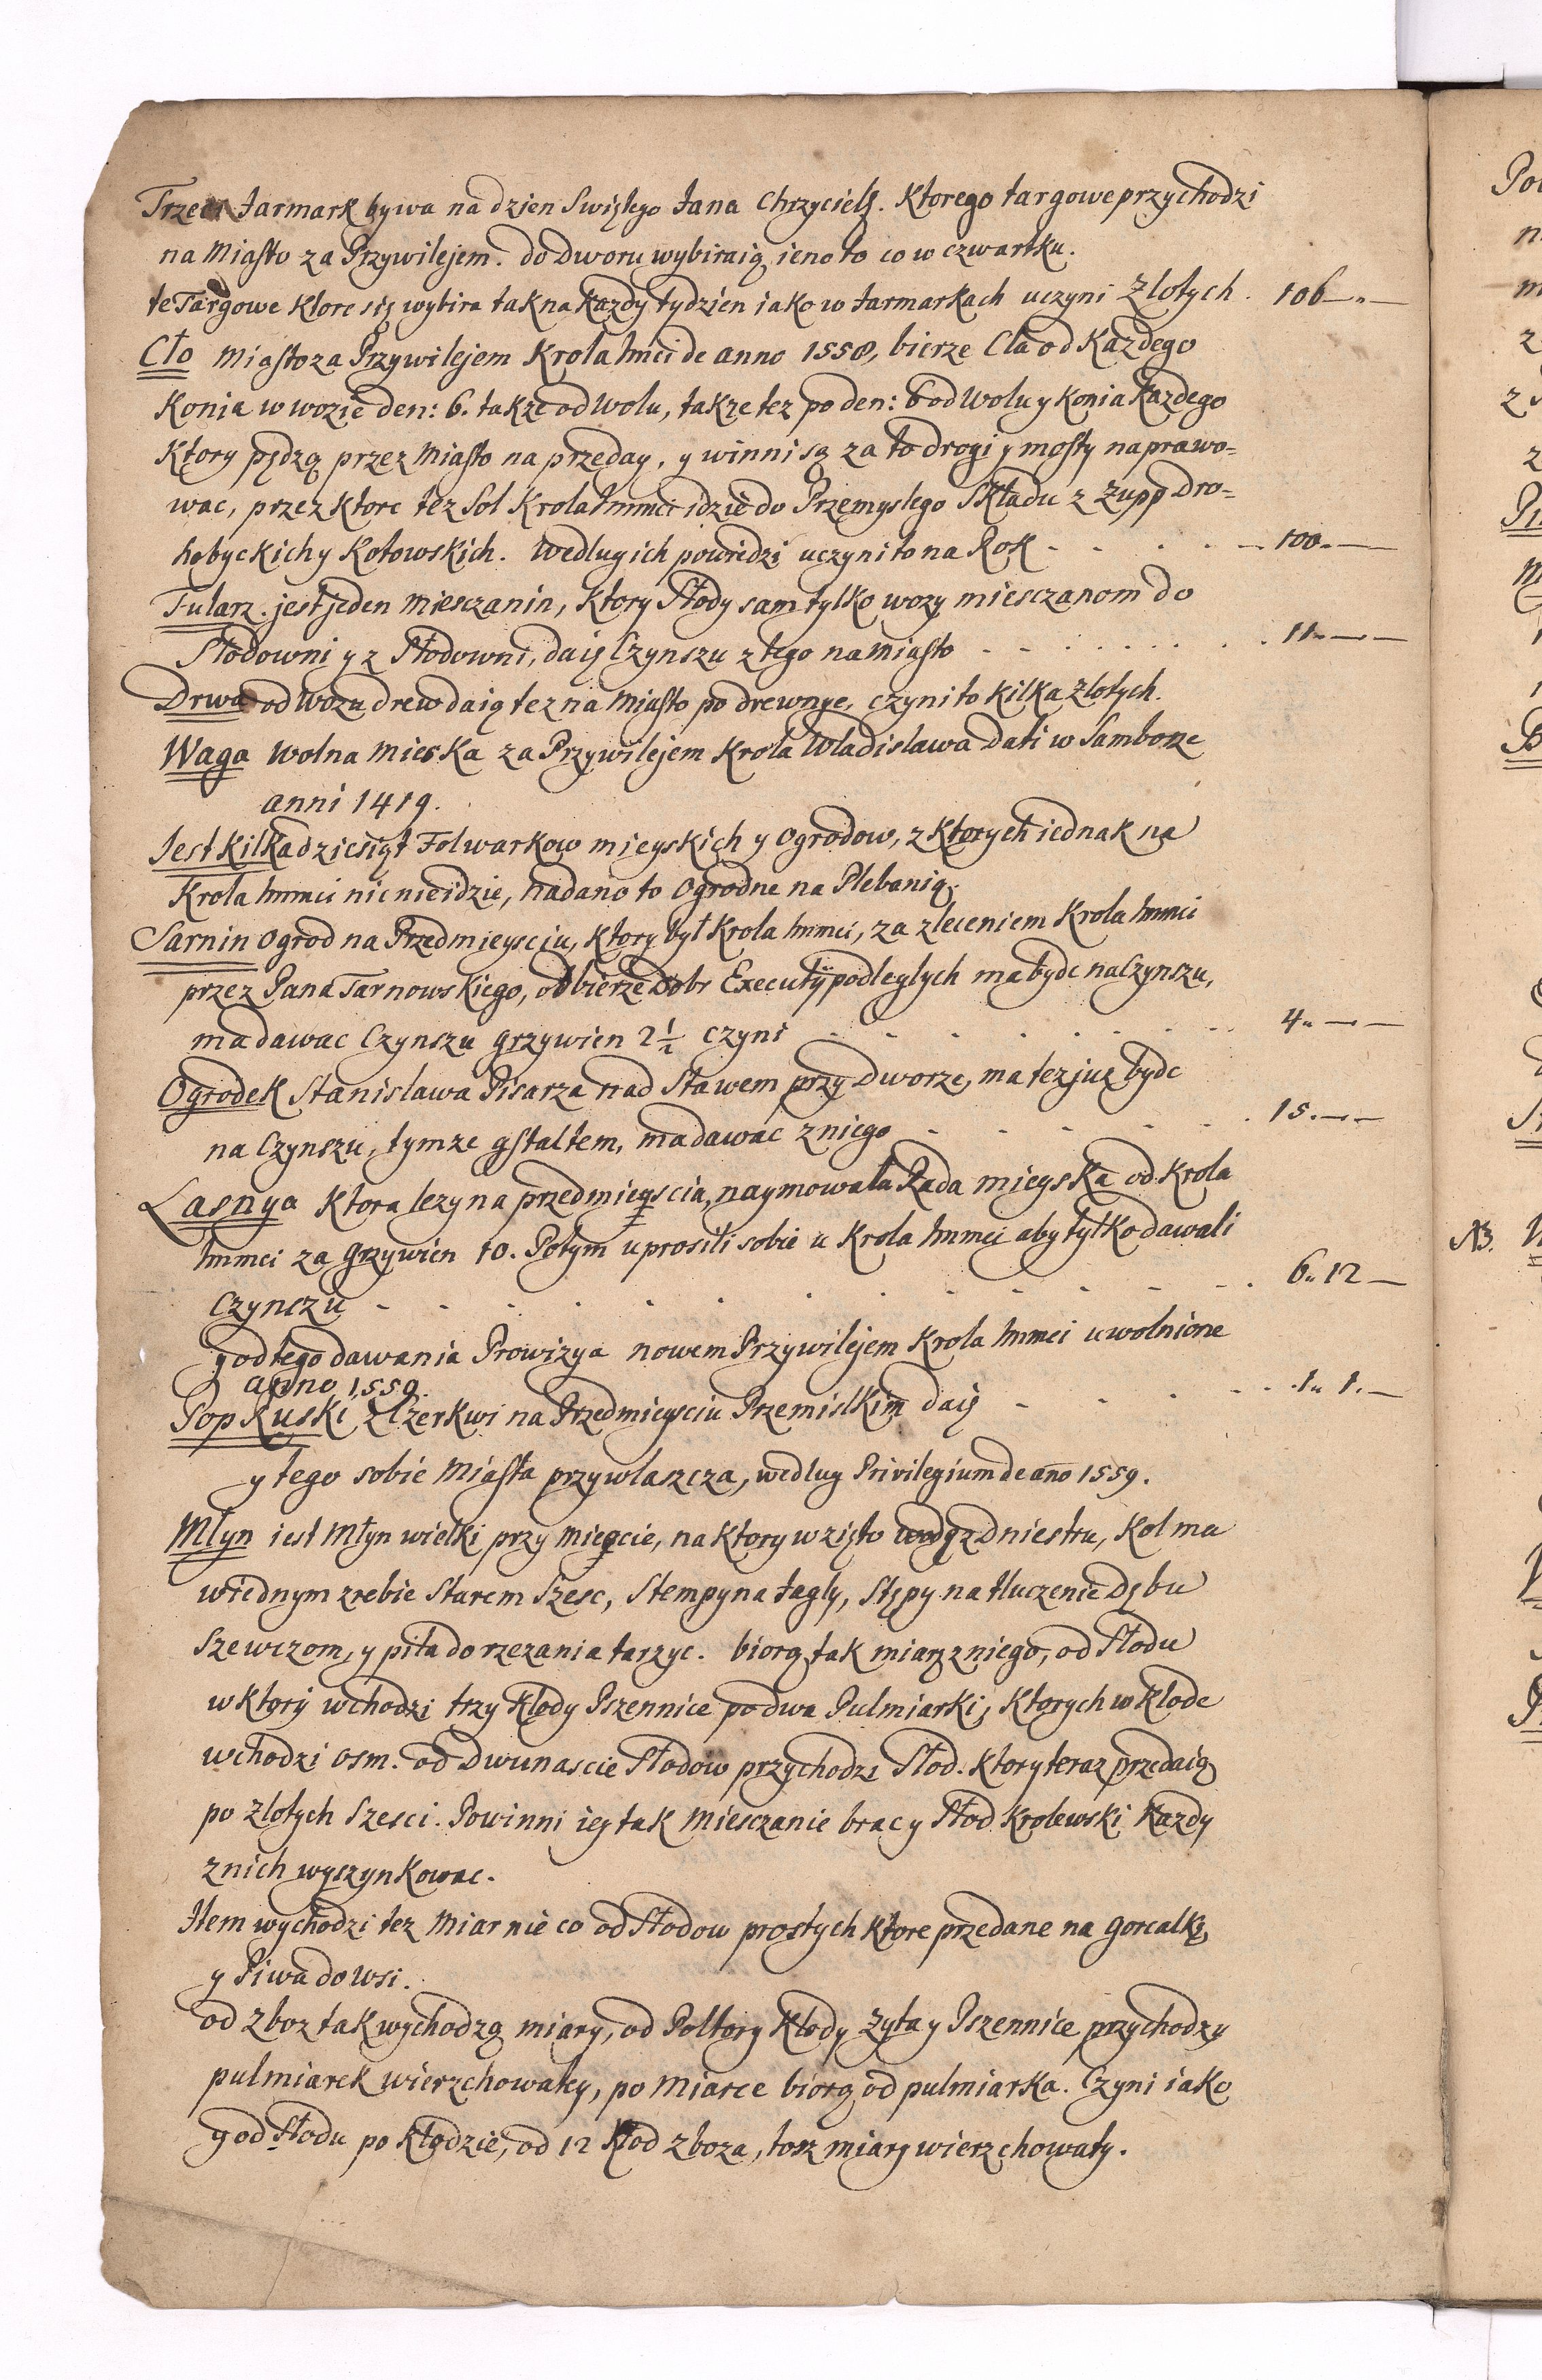 Trzeci Jarmark bywa na dzien Swiętego Jana Chrzyciela. Ktorego targowe przychodzi
na Miasto za Przywilejem. do Dworu wybiraią ieno to co w czwartku.
te Targowe Ktore się wybira tak na Kazdy tydzien iako w Jarmarkach uczyni Zlotych. 106„—
Cło Miasto za Przywilejem Krola Imci de anno 1558, bierze Cla od Kazdego
Konia w wozie den: 6. takze od Wolu, takze tez po den: 6 od Wolu y Konia Kazdego
Ktory pędzą przez Miasto na przeday, y winni są za to drogi y mosty naprawo=
wac, przez Ktore tez Sol Krola Immci idzie do Przemyslego Składu z Zupp Dro=
hobyckich y Kotowskich. Wedlug ich powiedzi uczyni to na Rok - - - - 100„—
Tularz. jest jeden Miesczanin, Ktory Słody sam tylko wozy miesczanom do
Słodowni y z Słodowni, daię Czynszu z tego na Miasto - - - - 11„——
Drwa od Wozu drew daią tez na Miasto po drewnye, czyni to kilka Zlotych.
Waga Wolna Mieska za Przywilejem Krola Wladislawa Dati w Samborze
anni 1419.
Jest kilkadziesiąt Folwarkow mieyskich y Ogrodow, z Ktorych iednak na
Krola Immci nic nie idzie, nadano to Ogrodne na Plebanią.
Sarnin Ogrod na Przedmieysciu, Ktory był Krola Immci, za zleceniem Krola Immci
przez Pana Tarnowskiego, odbierze Dobr Executÿ podleglych ma bydz na Czynszu,
ma dawac Czynszu grzywien 2 1/2 czyni - - - - 4„——
Ogrodek Stanislawa Pisarza nad Stawem przy Dworze, ma tez juz bydz
na Czynszu, tymze gstaltem, ma dawac z niego - - - - 15„——
Łasnya Ktora lezy na przedmieyscia, naymowała Rada mieyska od Krola
Immci za grzywien 10. Potym uprosili sobie u Krola Immci aby tylko dawali
Czynszu - - - - 6„12—
y od tego dawania Prowizya nowem Przywilejem Krola Immci uwolnione
anno 1559.
Pop Ruski z Czerkwi na Przedmieysciu Przemislkim daię - - - - 1„1.—
y tego sobie Miasta przywlaszcza, wedlug Privilegium de ano 1559.
Młyn iest Młyn wielki przy Mieyscie, na Ktory wzięto wodę z Dniestru, Kol ma
w iednym zrebie starem szesc, Stempy na Jagly, Stępy na tluczenie Dębu
Szewczom, y piła do rzezania tarzyc. biorą tak miarę z niego, od Słodu
w Ktory wchodzi trzy Kłody Pszennice po dwa Pulmiarki, Ktorych w Kłode
wchodzi osm. od Dwunascie Słodow przychodzi Słod. Ktory teraz przedaią
po Zlotych Szesci. Powinni iey tak Miesczanie brac y Słod Krolewski Kazdy
z nich wyszynkowac.
Item wychodzi tez Miar nieco od Słodow prostych ktore przedane na gorcalkę
y Piwa do Wsi.
od zboz tak wychodzą miary, od Poltory Kłody Zyta y Pszennice przychodzy
pulmiarek wierzchowaty, po Miarce biorą od pulmiarka. Czyni iako
y od Słodu po Kłodzie, od 12 Kłod zboza, tosz miary wierzchowaty.